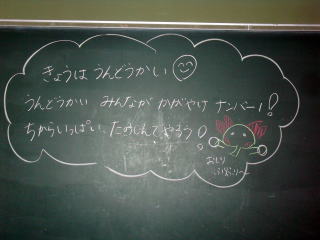 きょうは うんどうかい
うんどうかい みんなが かがやけ ナンバー1!
ちからいっぱい たのしんで やろう!
おしり
ふりふり〜